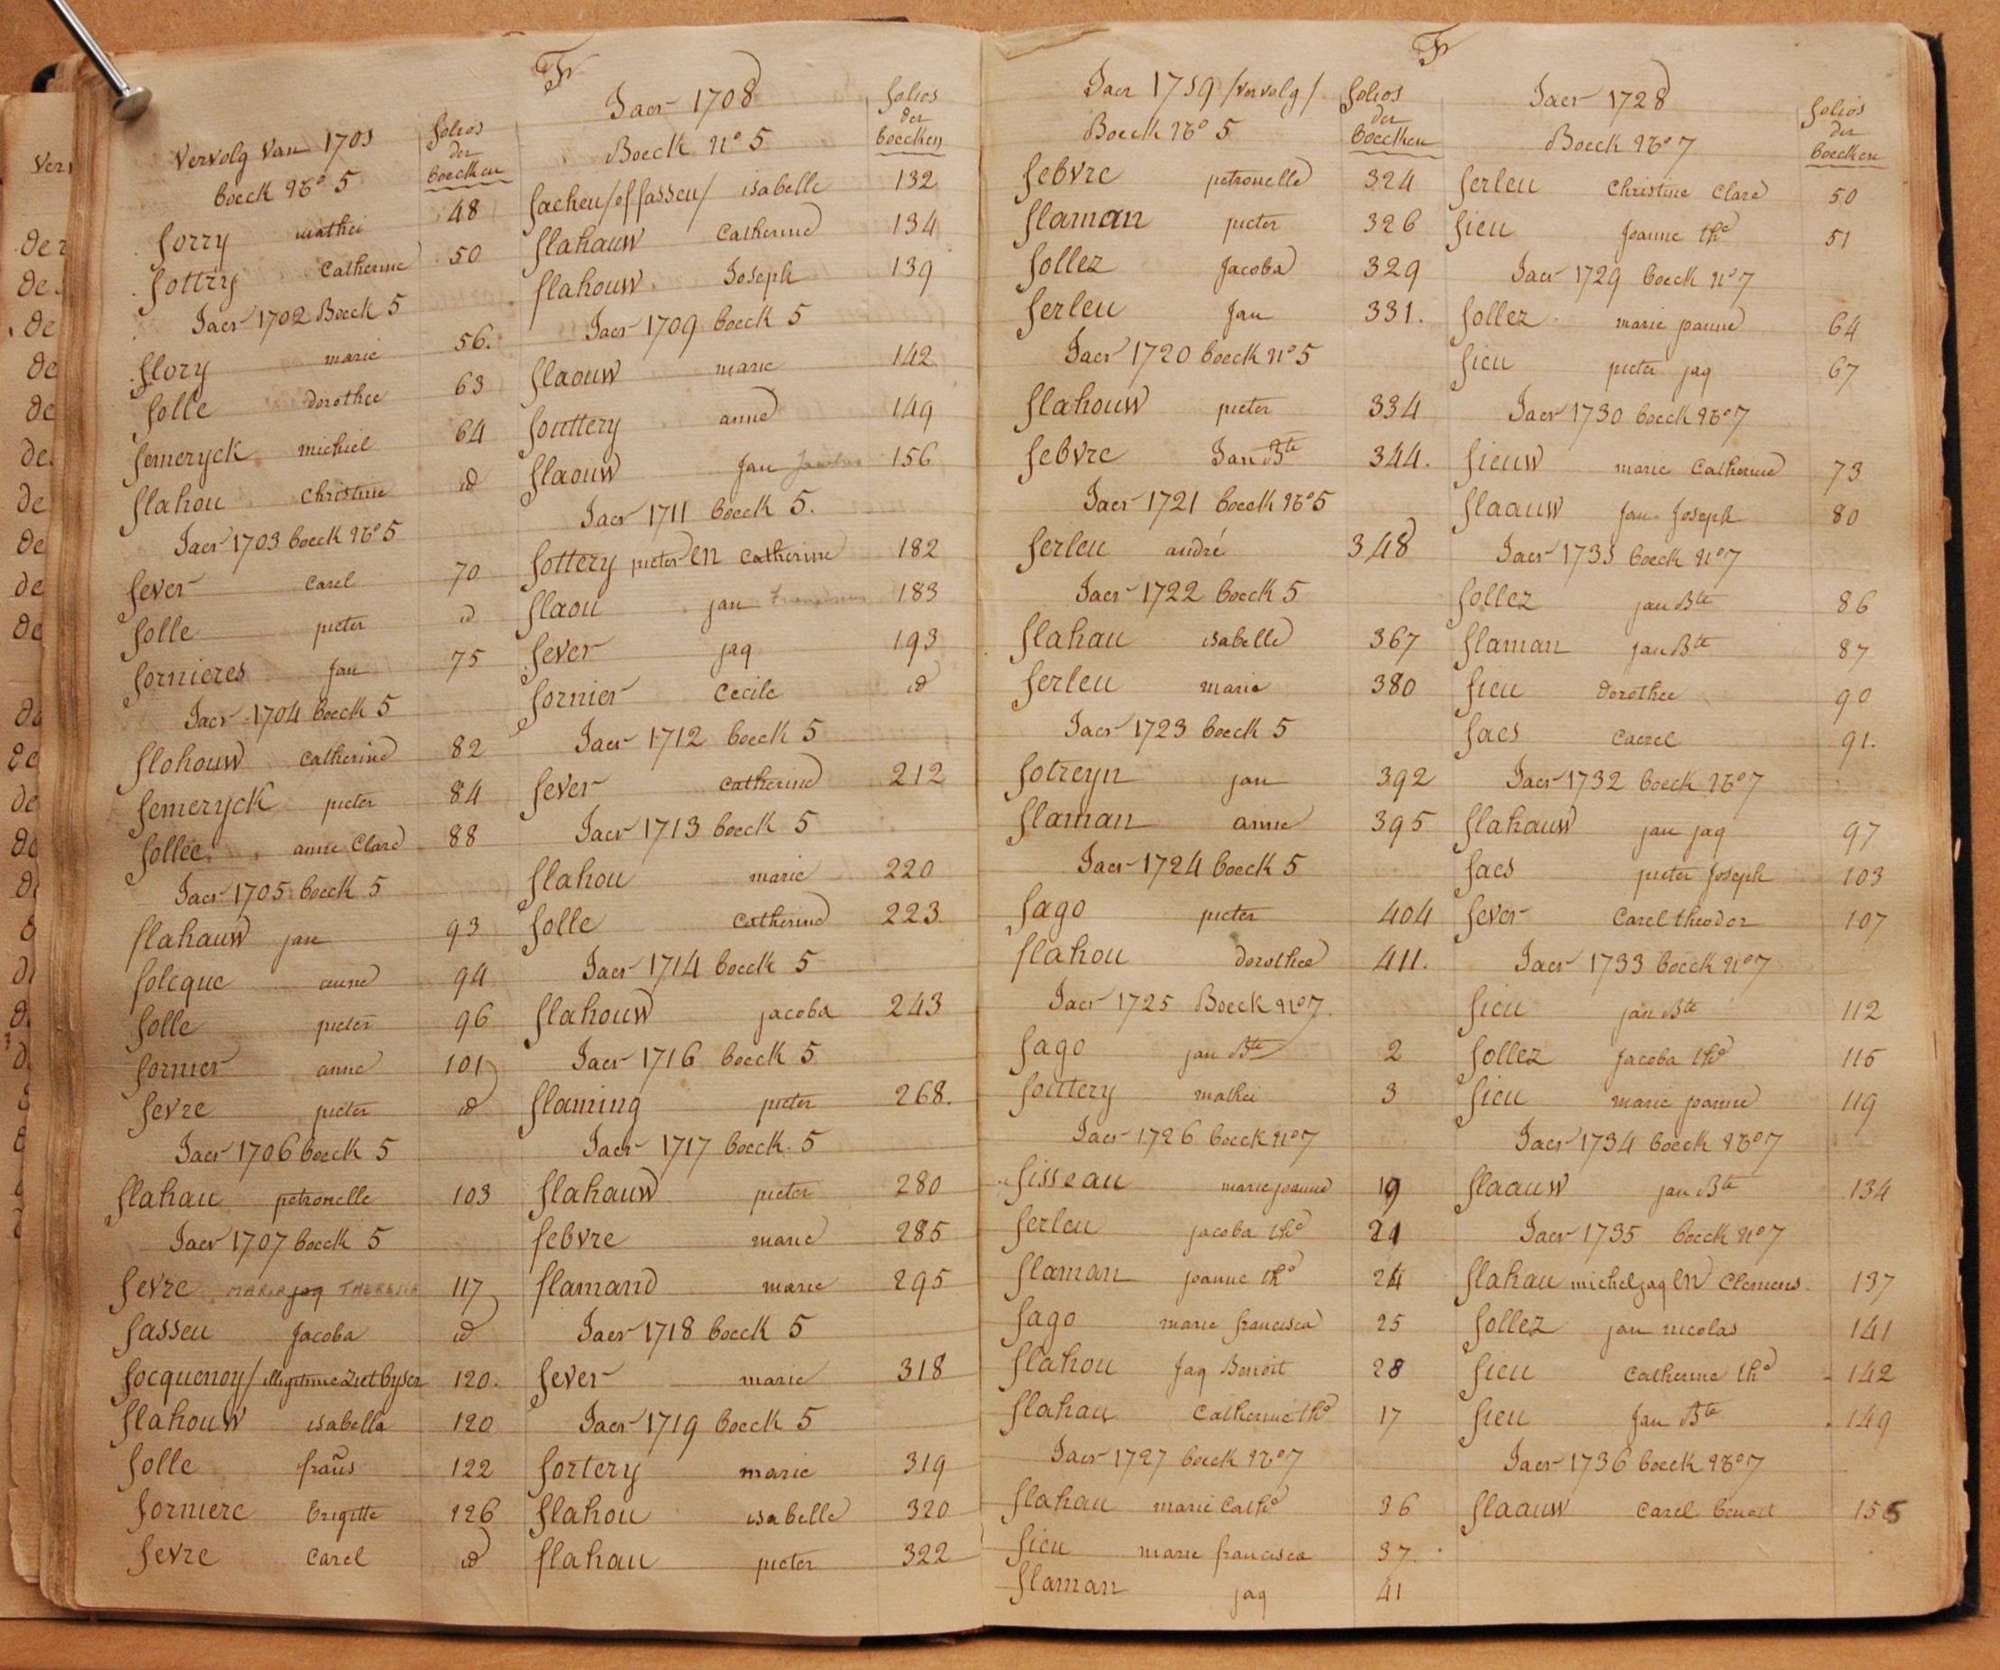 Fr
Vervolg van 1701
boeck No 5
folios
der
boecken
forry mathei 48
fottry Catherine 50
Jaer 1702 Boeck 5
flory marie 56.
folle dorothee 63
femeryck michiel 64
flahou Christine id
Jaer 1703 boeck No 5
fever Carel 70
folle pieter id
fornieres Jan 75
Jaer 1704 boeck 5
flohouw Catherine 82
femeryck pieter 84
follee anne Clare 88
Jaer 1705 boeck 5
flahauw jan 93
folcque anne 94
folle pieter 96
fornier anne 101
fevre pieter id
Jaer 1706 boeck 5
flahau petronelle 103
Jaer 1707 boeck 5
fevre MARIA jaq THERESIA 117
fasseu Jacoba id
focquenoy/ illegitime 120.
flahouw isabella 120
folle frans 122
forniere brigitte 126
fevre Carel id
Jaer 1708
Boeck No 5
folios
der
boecken
facheu/of fasseu/ isabelle 132
flahauw Catherine 134
flahouw Joseph 139
Jaer 1709 boeck 5
flaouw marie 142
fouttery anne 149
flaouw Jan 156
Jaer 1711 boeck 5.
fottery pieter en Catherine 182
flaou jan 183
fever jaq 193
fornier Cecile id
Jaer 1712 boeck 5
fever Catherine 212
Jaer 1713 boeck 5
flahou marie 220
folle Catherine 223
Jaer 1714 boeck 5
flahouw jacoba 243
Jaer 1716 boeck 5
flaming pieter 268.
Jaer 1717 boeck 5
flahauw pieter 280
febvre marie 285
flamand marie 295
Jaer 1718 boeck 5
fever marie 318
Jaer 1719 boeck 5
fortery marie 319
flahou isabelle 320
flahau pieter 322
Fr
Jaer 1719 /vervolg/
Boeck No 5
folios
der
boecken
febvre petronelle 324
flaman pieter 326
follez Jacoba 329
ferleu Jan 331.
Jaer 1720 boeck No 5
flahouw pieter 334
febvre Jan Bte 344.
Jaer 1721 boeck No 5
ferleu andré 348
Jaer 1722 boeck 5
flahau isabelle 367
ferleu marie 380
Jaer 1723 boeck 5
fotreyn jan 392
flaman anne 395
Jaer 1724 boeck 5
fago pieter 404
flahou dorothee 411.
Jaer 1725 Boeck No 7.
fago jan Bte 2
fouttery mathei 3
Jaer 1726 boeck No 7
fisseau marie joanne 19
ferleu jacoba the 21
flaman joanne the 24
fago marie francisca 25
flahou Jaq Benoit 28
flahau Catherine the 17
Jaer 1727 boeck No 7
flahau marie Cathe 36
fieu marie francisca 37.
flaman jaq 41
Jaer 1728
Boeck No 7
folios
der
boecken
ferleu Christine Clare 50
fieu Joanne the 51
Jaer 1729 boeck No 7
follez marie joanne 64
fieu pieter jaq 67
Jaer 1730 boeck No 7
fieuw marie Catherine 73
flaauw Jan Joseph 80
Jaer 1731 boeck No 7
follez jan Bte 86
flaman jan Bte 87
fieu dorothee 90
faes Caerel 91.
Jaer 1732 boeck No 7
flahauw jan jaq 97
faes pieter Joseph 103
fever Carel theodor 107
Jaer 1733 boeck No 7
fieu jan Bte 112
follez Jacoba the 115
fieu marie joanne 119
Jaer 1734 boeck No 7
flaauw jan Bte 134
Jaer 1735 boeck No 7
flahau michel jaq en Clemens. 137
follez jan nicolas 141
fieu Catherine the 142
fieu Jan Bte 149
Jaer 1736 boeck No 7
flaauw Carel benoit 155